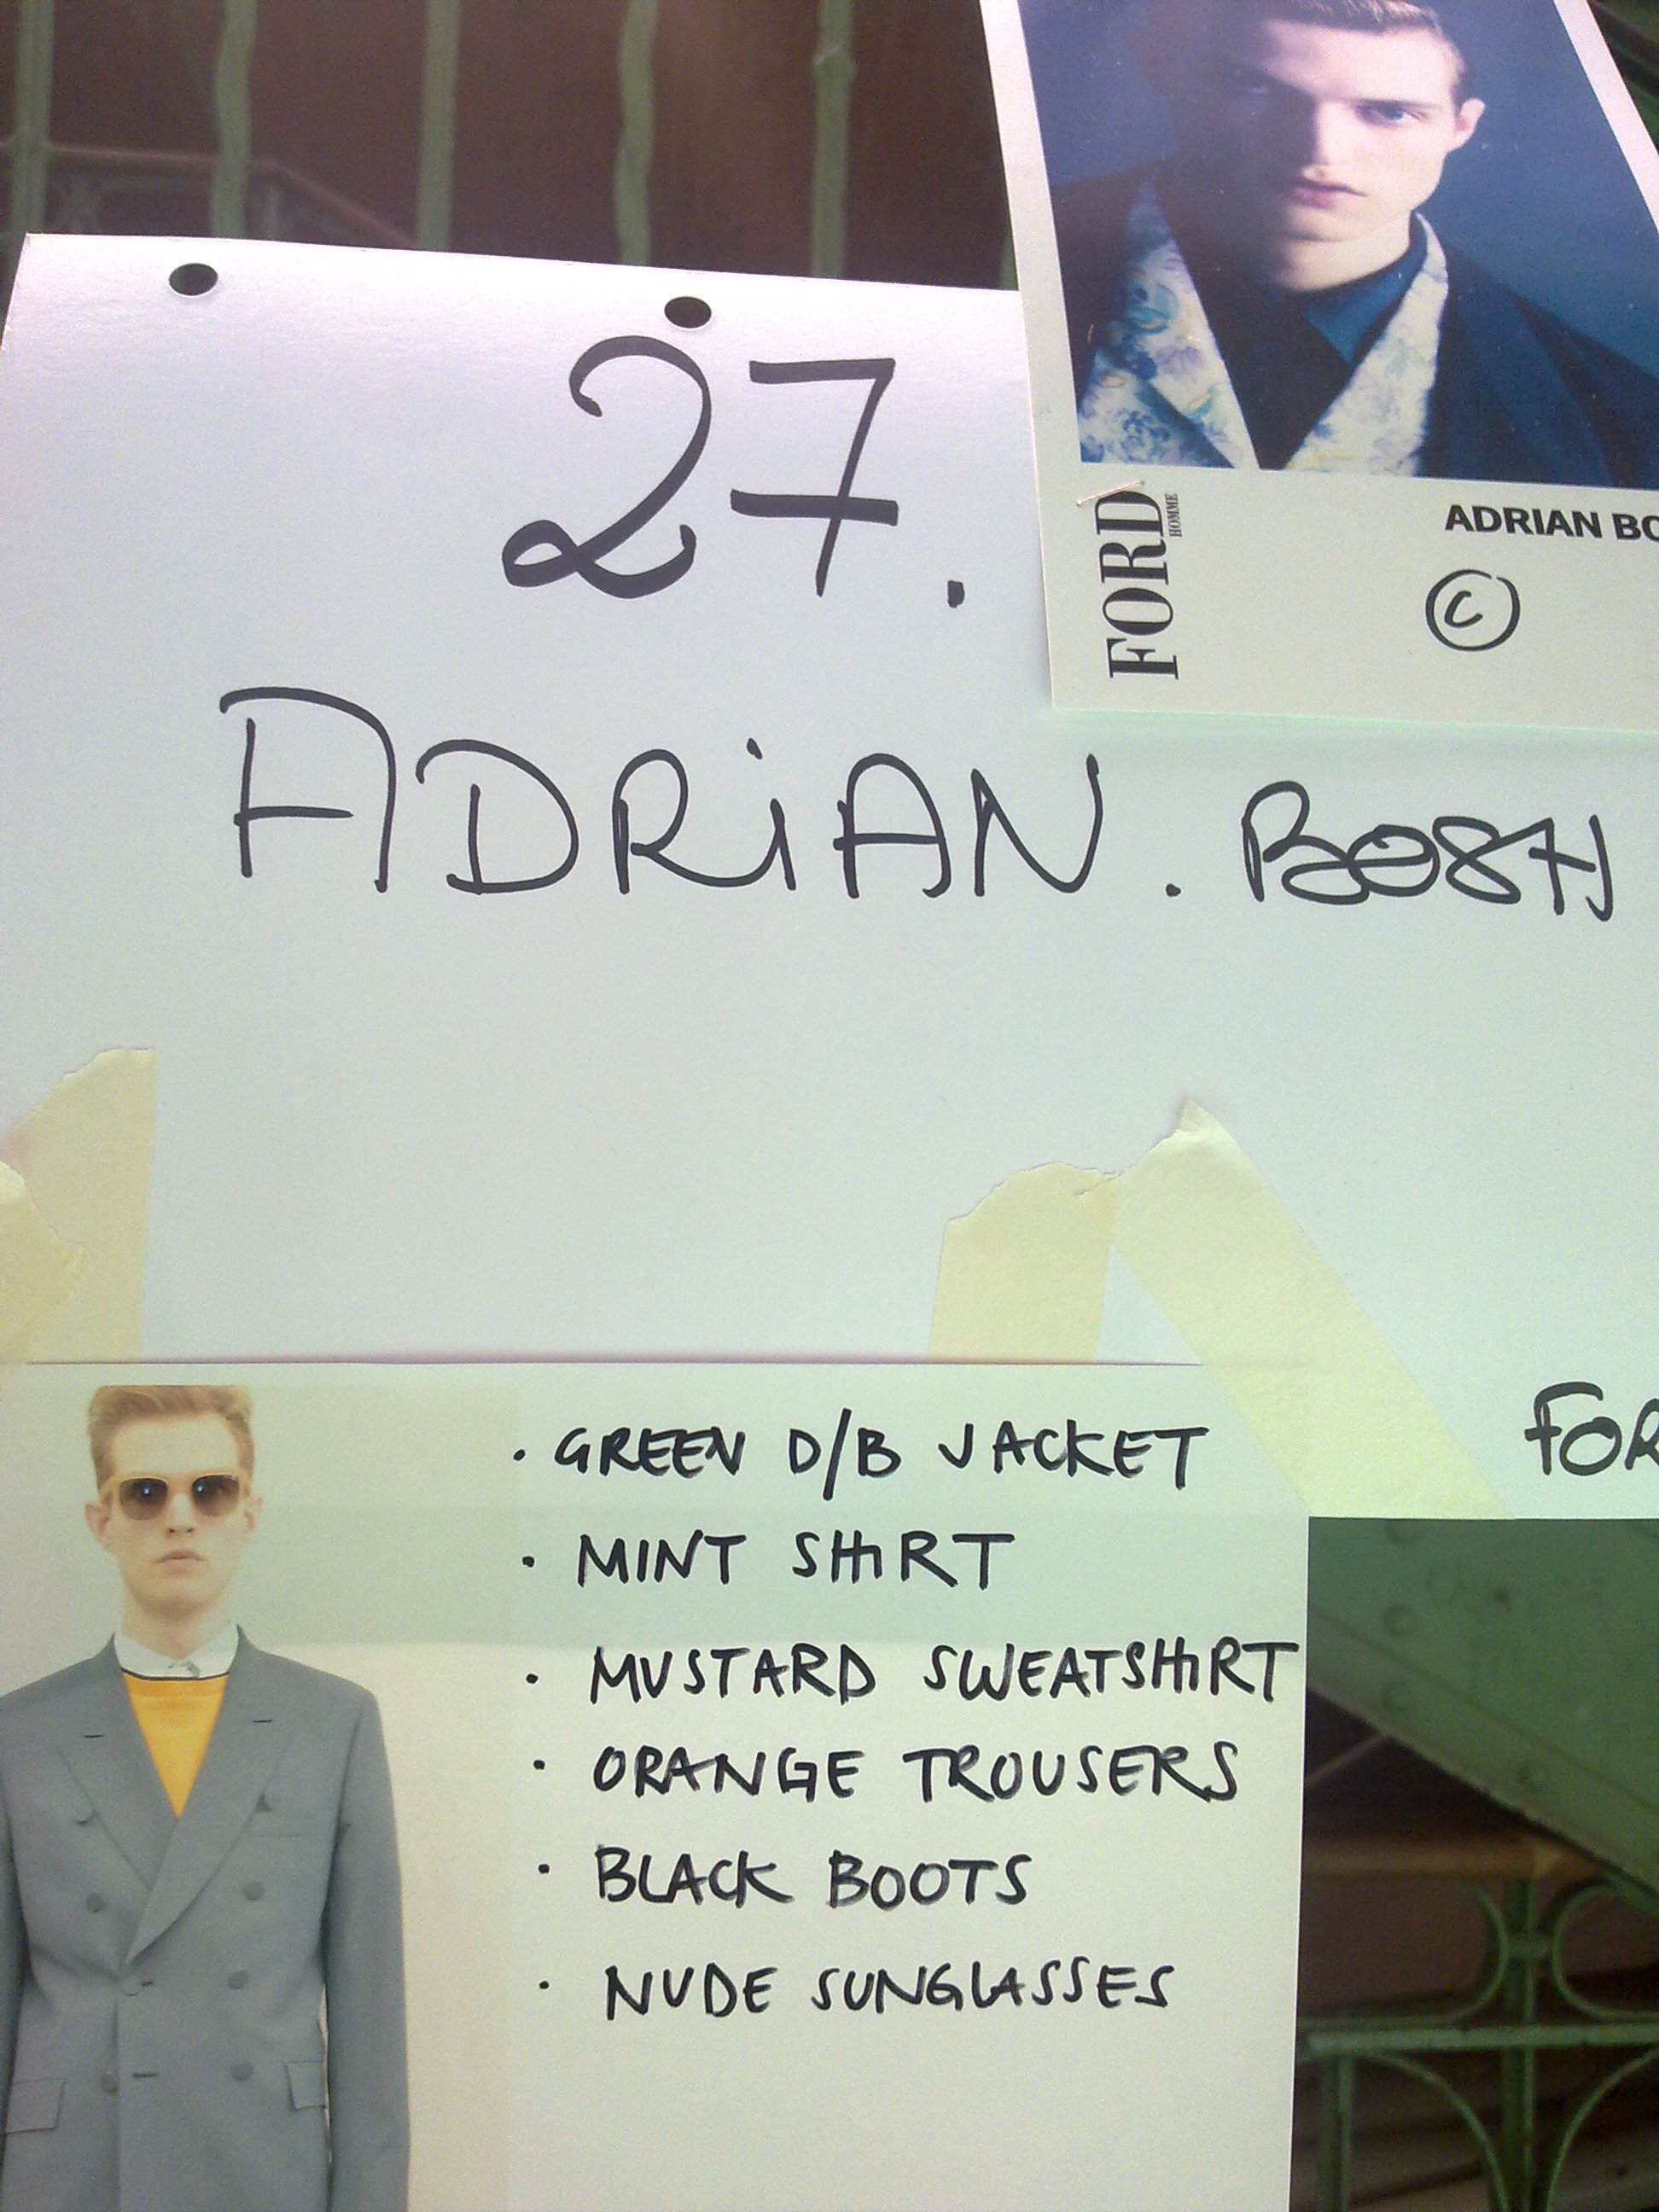 27.
FORD
HOMME
ADRIAN BO
©
ADRiAN.
FOR
· GREEN D/B JACKET
· MINT SHiRT
· MUSTARD SWEATSHiRT
· ORANGE TROUSERS
· BLACK BOOTS
· NUDE SUNGLASSES